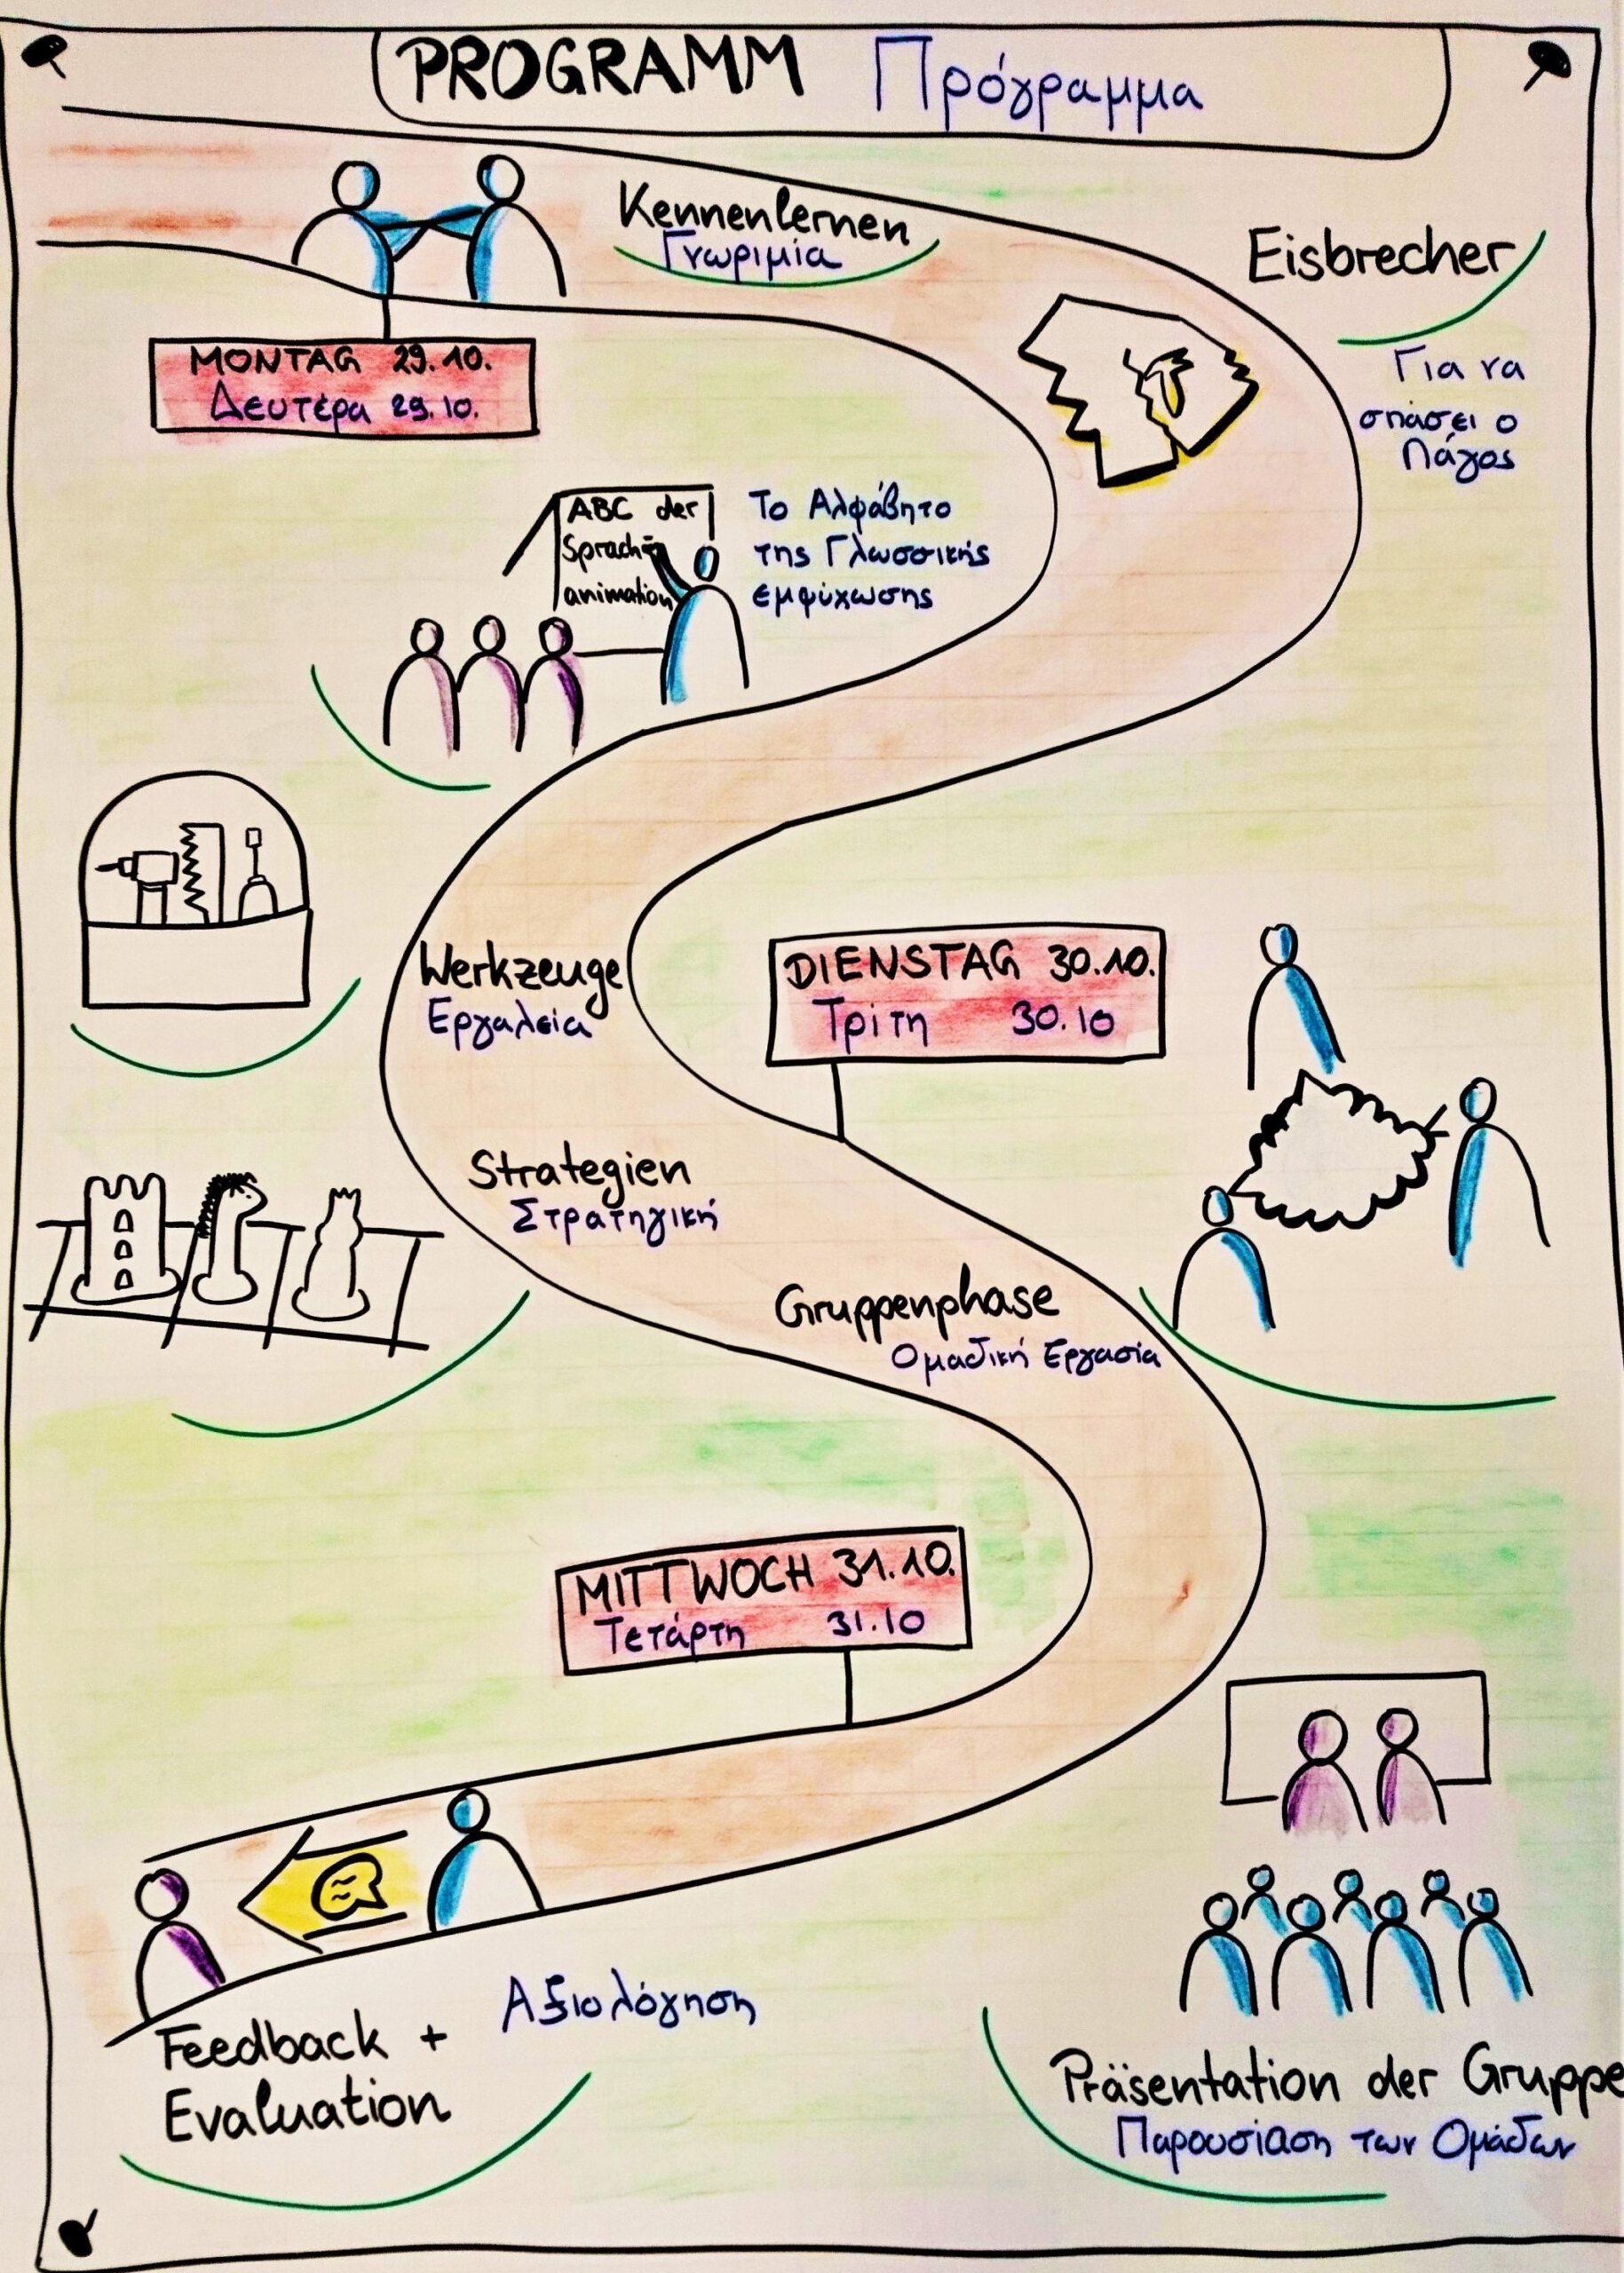 PROGRAMM Πρόγραμμα
Kennenlernen
Γνωριμία
Eisbrecher
Για να
σπάσει ο
Πάγος
MONTAG 29.10.
Δευτέρα 29.10.
ABC der
Sprach-
animation
Το Αλφάβητο
της Γλωσσικής
εμψύχωσης
Werkzeuge
Εργαλεία
DIENSTAG 30.10.
Τρίτη 30.10
Strategien
Στρατηγική
Gruppenphase
Ομαδική Εργασία
MITTWOCH 31.10.
Τετάρτη 31.10
Feedback +
Evaluation
Αξιολόγηση
Präsentation der Gruppe
Παρουσίαση των Ομάδων